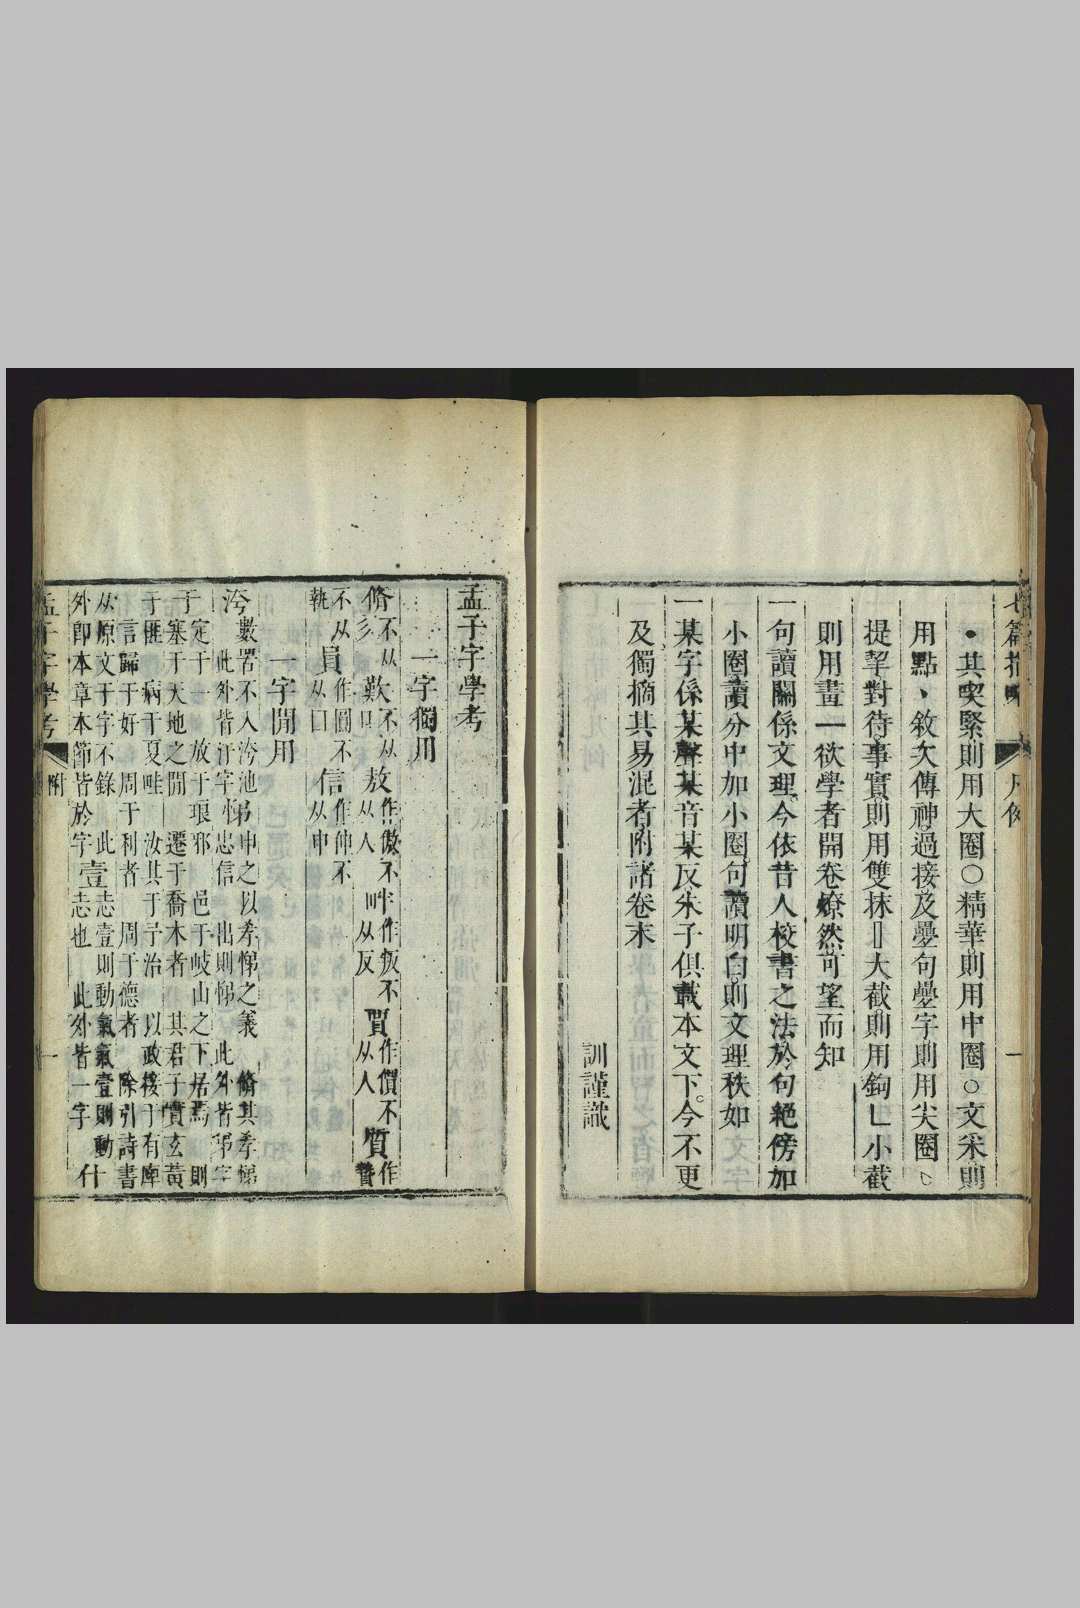 其喫緊則用大圈○精華則用中圈○文采則
用點、敘次傳神過接及疊句疊字則用尖圈
提挈對待事實則用雙抹‖大截則用鉤乚小截
則用畫一欲學者開卷燎然可望而知
一句讀關係文理今依昔人校書之法於句絕傍加
小圈讀分中加小圈句讀明白則文理秩如
一某字係某聲某音某反朱子俱載本文下今不更
及獨摘其易混者附諸卷末
訓謹識
凡例
一
孟子字學考
一字獨用
脩不从彡
歎不从口
敖作傲不从人
畔作叛不从反
賈作價不从人
質作贄不从
員作圓不从口
信作伸不从申
執
一字閒用
洿數罟不入洿池此外皆汙字
弟申之以孝悌之義
脩其孝悌忠信
出則悌此外皆弟字
于定于一
放于琅邪
邑于岐山之下居焉
則塞于天地之閒
遷于喬木者
其君子實玄黃于匪
病于夏畦
汝其于予治
以政接于有庳
言歸于好
周于利者
周于德者
除引詩書从原文于字不錄
此外卽本章本節皆於字
壹志壹則動氣氣壹則動志也
此外皆一字
什
孟子字學考
附
一